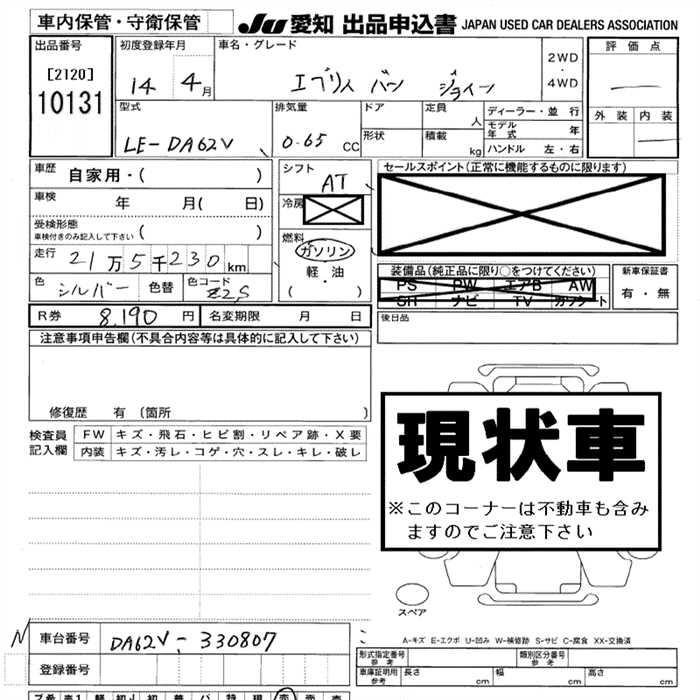 車内保管・守衛保管 JU 愛知 出品申込書 JAPAN USED CAR DEALERS ASSOCIATION
出品番号 初度登録年月 車名・グレード 評価点
[2120] 14 4月 エブリィ バン ジョイン 2WD ・ 4WD
10131 外装 内装
型式 排気量 ドア 定員 人 ディーラー・並行
モデル年式 年
LE-DA62V 0.65 CC 形状 積載 kg ハンドル 左・右
車歴 自家用・( ) シフト AT セールスポイント(正常に機能するものに限ります)
車検 年 月( 日) 冷房
受検形態
車検付きのみ記入して下さい ( ) 燃料 ガソリン
走行 21万5千230km 軽・油 装備品(純正品に限り○をつけてください) 新車保証書
色 シルバー 色替 色コード Z2S ( ) PS PW エアB AW 有・無
SH ナビ TV カワシート
R券 8,190円 名変期限 月 日 後日品
注意事項申告欄(不具合内容等は具体的に記入して下さい)
修復歴 有 (箇所 )
検査員 FW キズ・飛石・ヒビ割・リペア跡・X要
記入欄 内装 キズ・汚レ・コゲ・穴・スレ・キレ・破レ
現状車
※このコーナーは不動車も含み
ますのでご注意下さい
スペア
A-キズ E-エクボ U-凹み W-補修跡 S-サビ C-腐食 XX-交換済
車台番号 DA62V-330807 形式指定番号 参考 類別区分番号 参考
登録番号 車庫証明用 参考 長さ cm 幅 cm 高さ cm